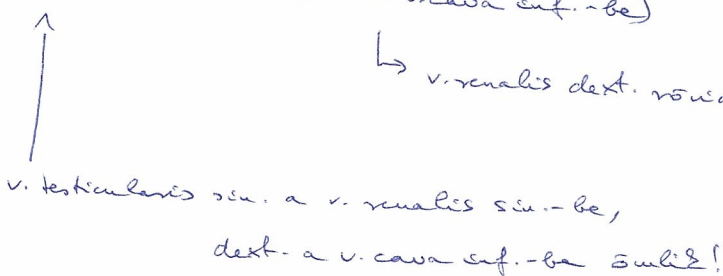 cava inf.-be)
v. renalis dext. rövid
v. testicularis sin. a v. renalis sin.-be,
dext. a v. cava inf.-be ömlik!